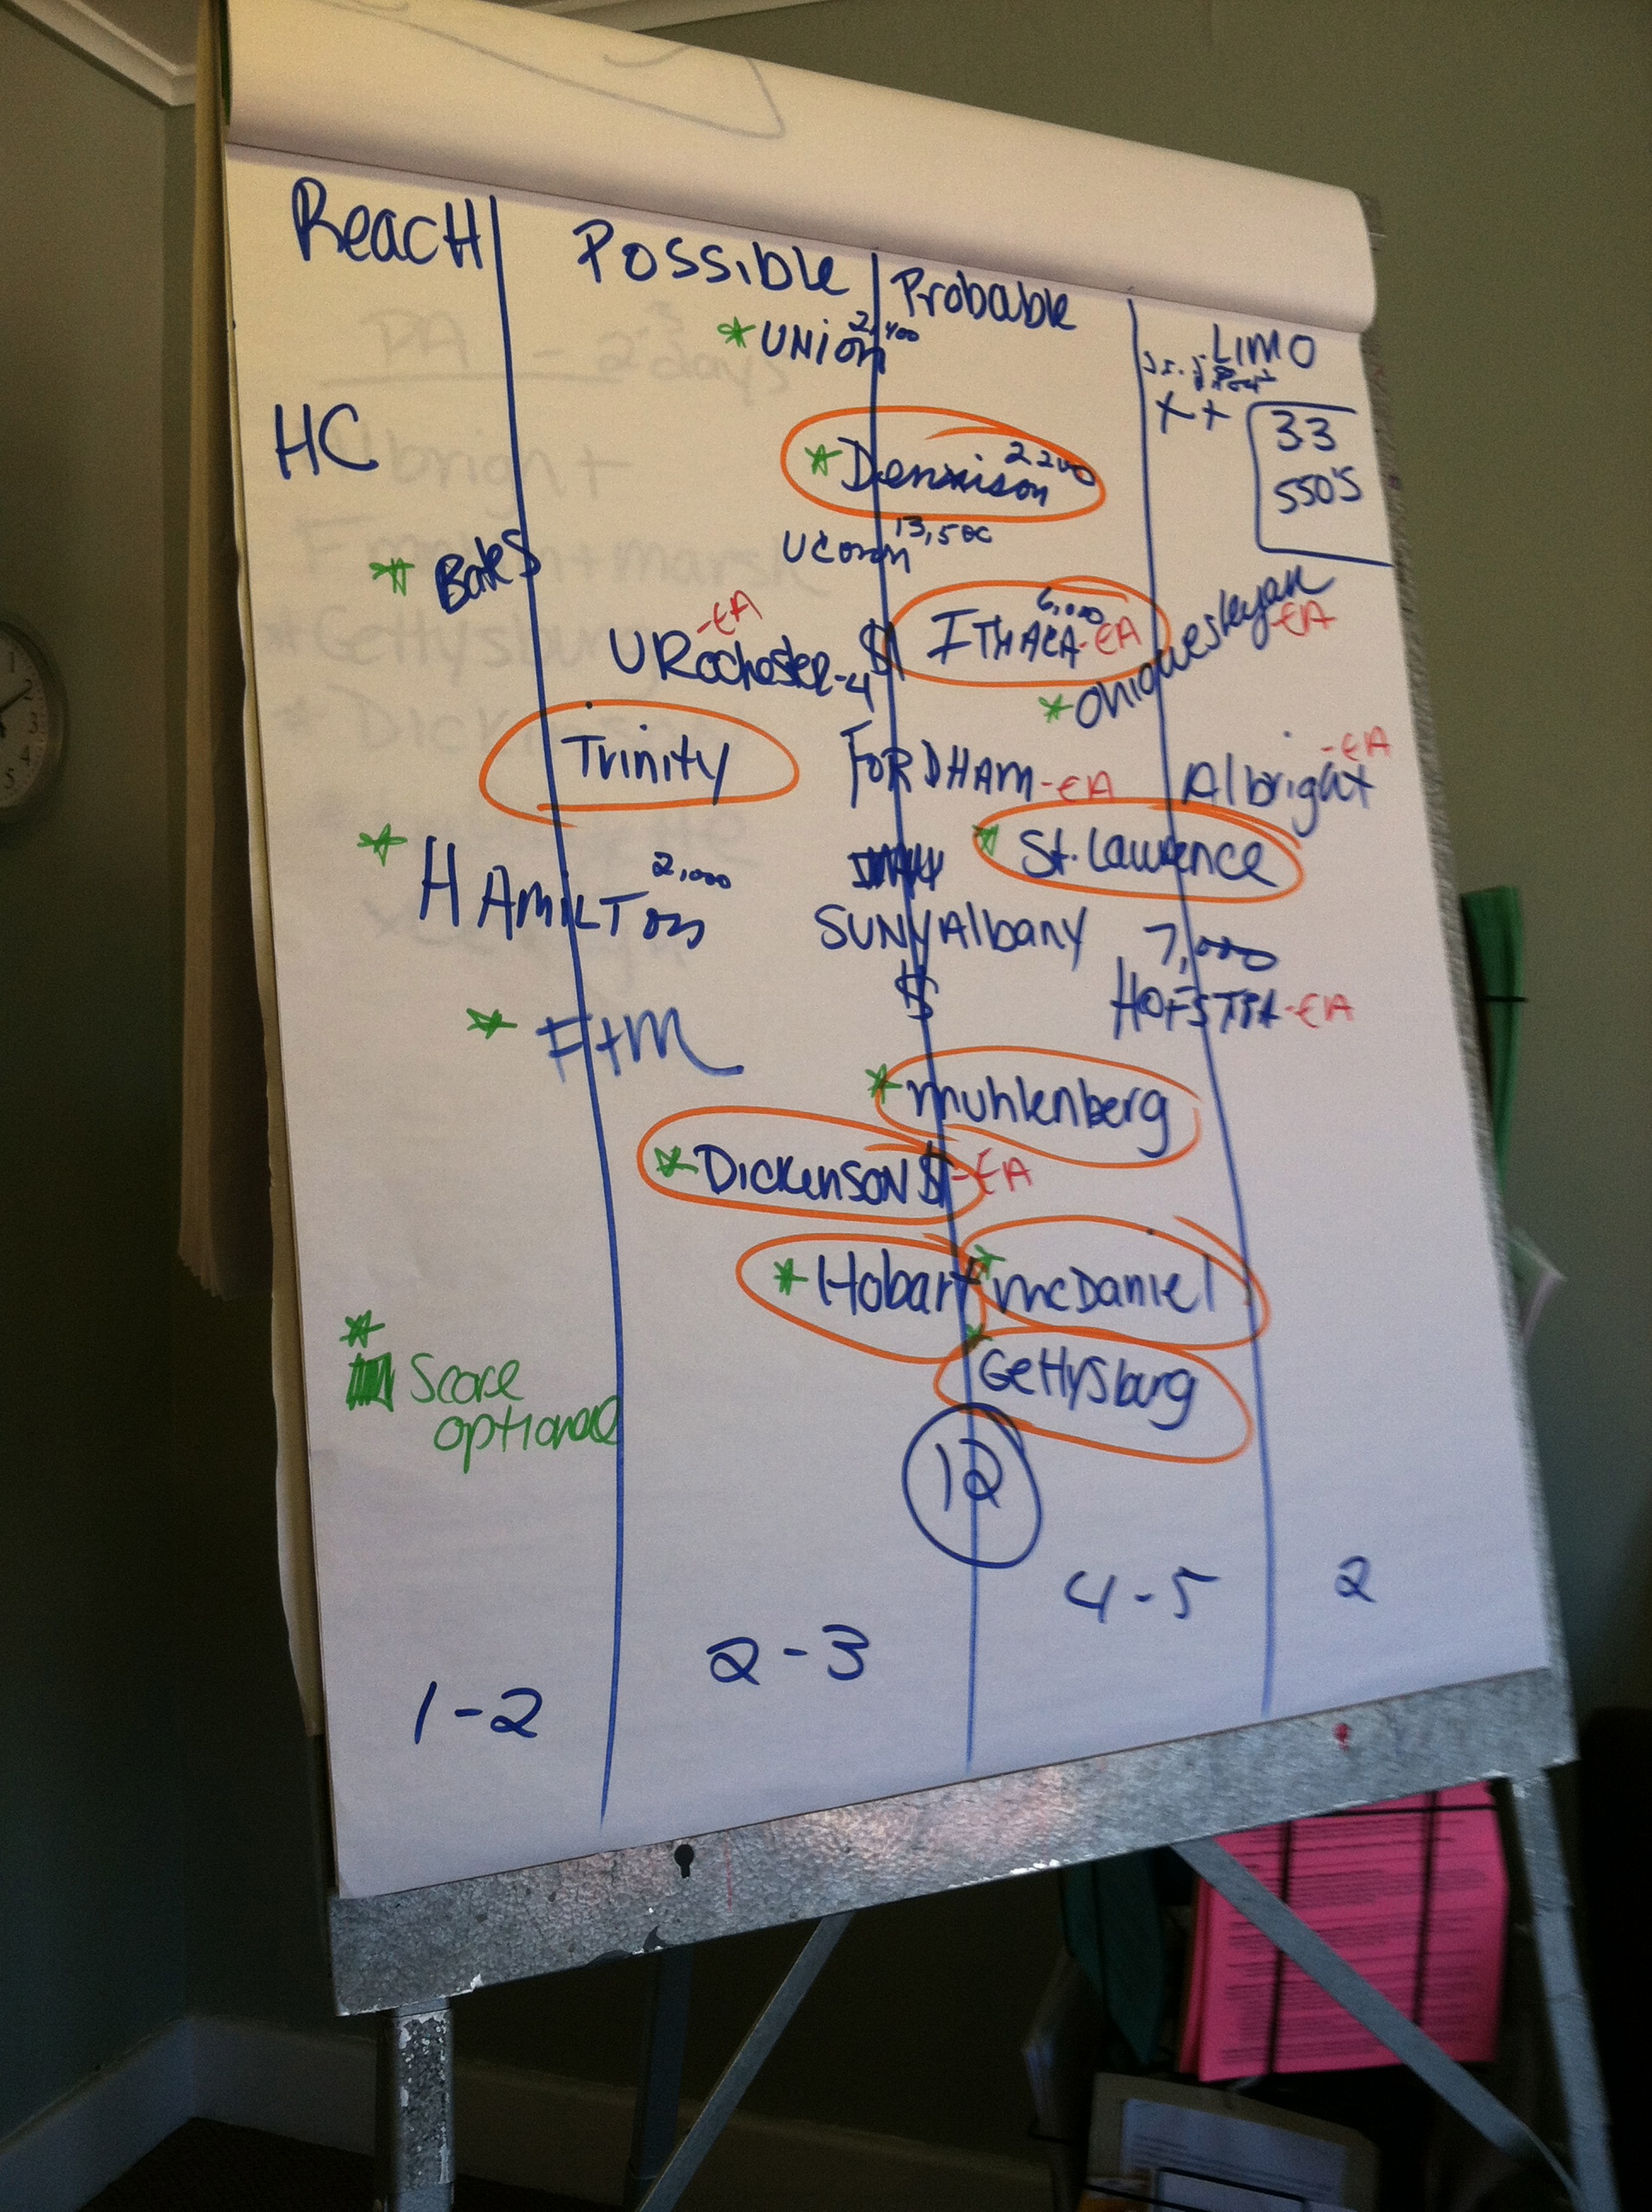 ReacH
Possible
Probable
LIMO
* UNion 2,400
HC
* Dennison 2200
x +
33
550's
UConn
* Bates
URochester-4 $ -EA
ITHACA-EA 6,000
* Ohiowesleyan -EA
Trinity
FORDHAM-EA
Albright -EA
* HAmiLTon 2,000
* St. Lawrence
SUNYAlbany
$
7,000
HOFSTRA-EA
* F+M
* muhlenberg
* Dickenson $ -EA
* Hobart
* mcDaniel
* GeTTysburg
*
Score
optional
12
1-2
2-3
4-5
2
PA - 2-3 days
Albright
* Gettysburg
* Dickinson